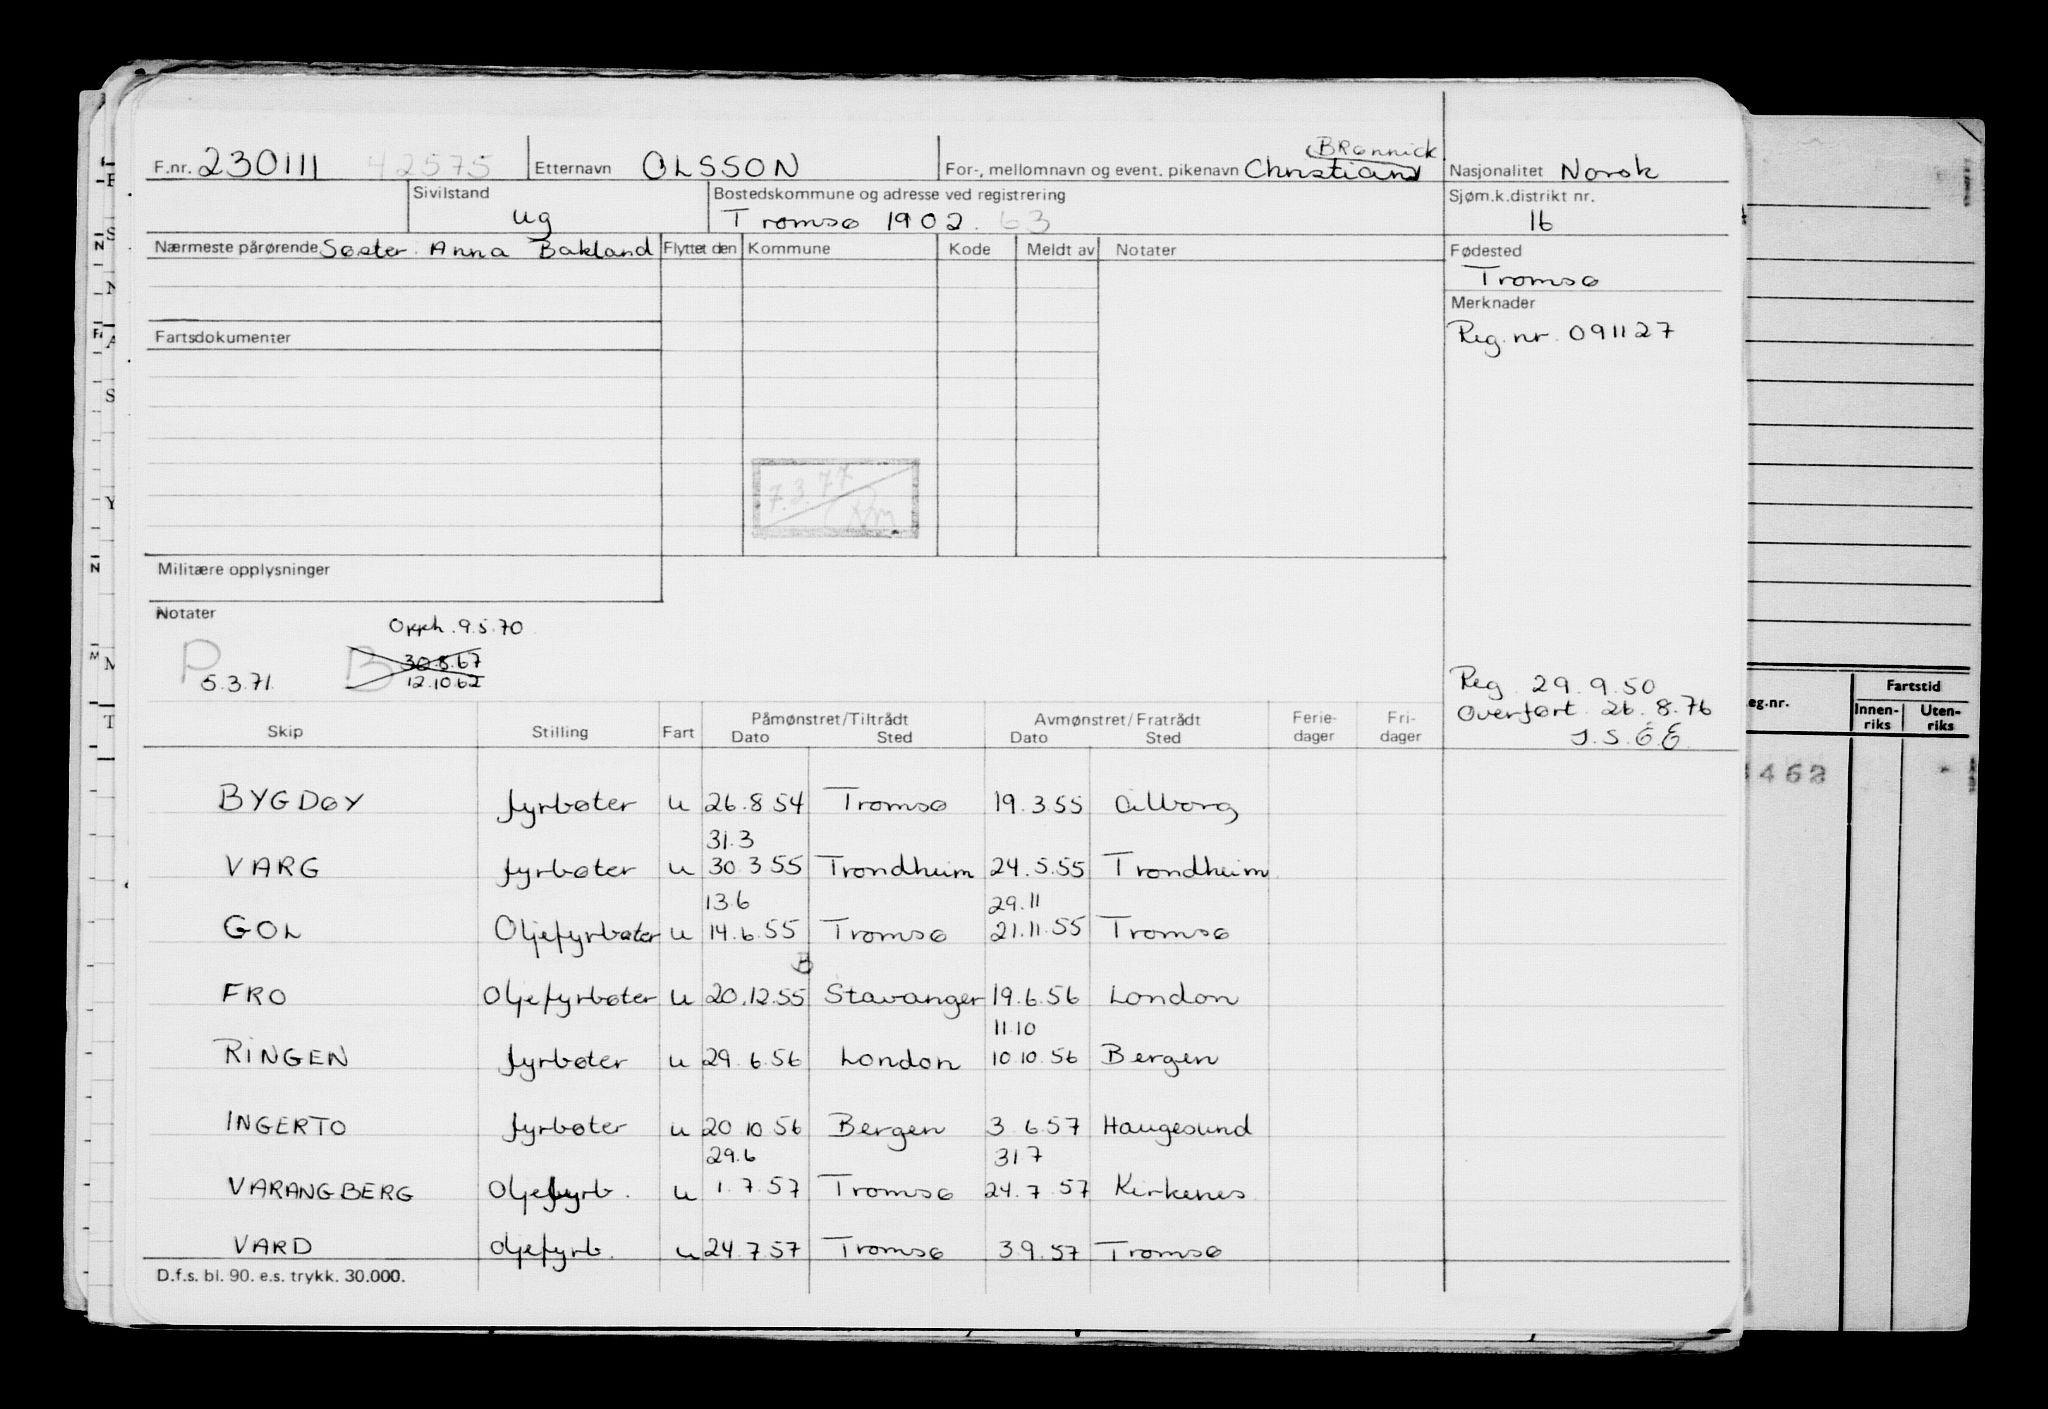 F.nr. 230111 42575 Etternavn OLSSON For-, mellomnavn og event. pikenavn Christian BRønnick Nasjonalitet Norsk
Sivilstand ug Bostedskommune og adresse ved registrering Tromsø 1902. 63 Sjøm.k.distrikt nr. 16
Nærmeste pårørende Søster: Anna Bakland Flyttet den Kommune Kode Meldt av Notater Fødested
Tromsø
Merknader
Fartsdokumenter Reg. nr. 091127
7.3.77
Militære opplysninger
Notater
Opph. 9.5.70
P 5.3.71. B 30.8.67
12.10.62
Reg. 29.9.50
Overført 26.8.76
Skip Stilling Fart Påmønstret/Tiltrådt Dato Sted Avmønstret/Fratrådt Dato Sted Ferie-dager Fri-dager
BYGDøY fyrbøter u 26.8.54 Tromsø 19.3.55 Ålborg
31.3
VARG fyrbøter u 30.3.55 Trondheim 24.5.55 Trondheim
13.6 29.11
GOL Oljefyrbøter u 14.6.55 Tromsø 21.11.55 Tromsø
B
FRO Oljefyrbøter u 20.12.55 Stavanger 19.6.56 London
11.10
RINGEN fyrbøter u 29.6.56 London 10.10.56 Bergen
INGERTO fyrbøter u 20.10.56 Bergen 3.6.57 Haugesund
29.6 31.7
VARANGBERG Oljefyrb. u 1.7.57 Tromsø 24.7.57 Kirkenes
VARD Oljefyrb. u 24.7.57 Tromsø 3.9.57 Tromsø
D.f.s. bl. 90. e.s. trykk. 30.000.
eg.nr. Fartstid
Innen-riks Uten-riks
462